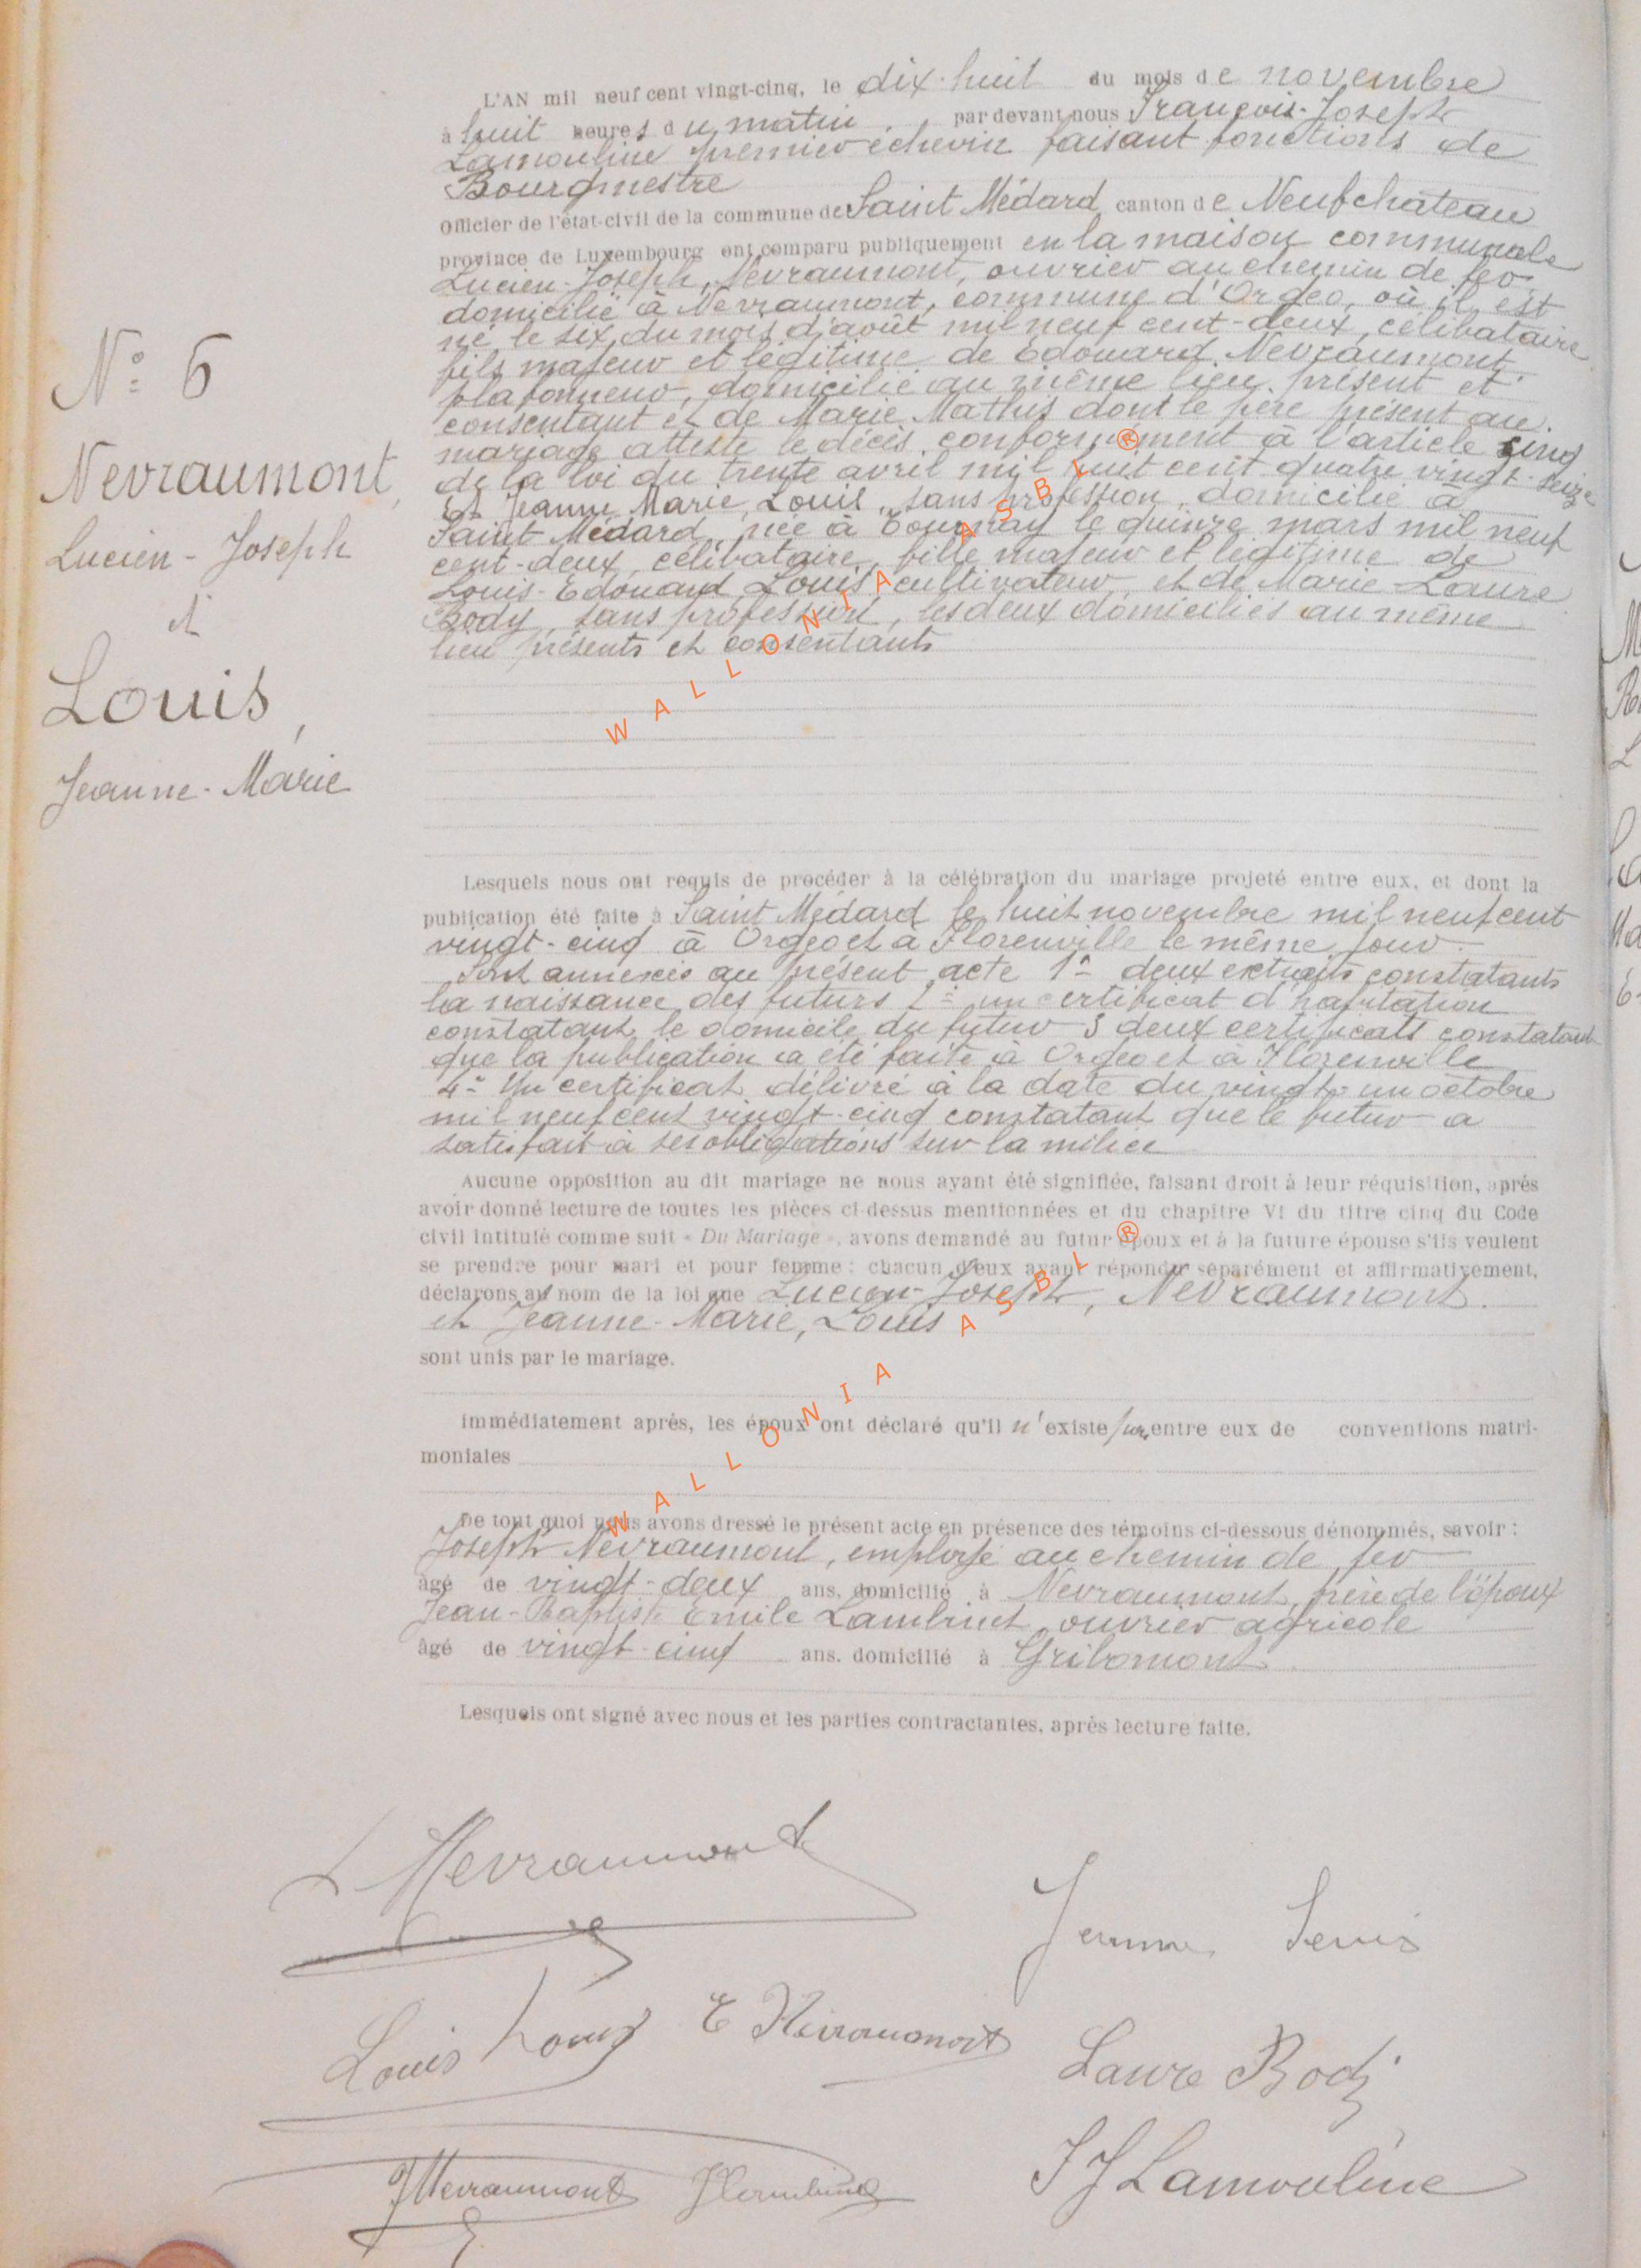 N° 6
Nevraumont,
Lucien-Joseph
et
Louis,
Jeanne-Marie
L'AN mil neuf cent vingt-cinq, le dix-huit du mois de novembre
à huit heures du matin, par devant nous François-Joseph
Lamouline premier échevin faisant fonctions de
Bourgmestre
Officier de l'état-civil de la commune de Saint Médard canton de Neufchateau
province de Luxembourg ont comparu publiquement en la maison communale
Lucien-Joseph, Nevraumont, ouvrier au chemin de fer
domicilié à Nevraumont, commune d'Orgeo, où il est
né le six du mois d'août mil neuf cent-deux, célibataire
fils majeur et légitime de Edouard Nevraumont
plafonneur, domicilié au même lieu présent et
consentant et de Marie Mathis dont le père présent au
mariage atteste le décès conformément à l'article cinq
de la loi du trente avril mil huit cent quatre vingt-seize
Et Jeanne Marie, Louis, sans profession, domicilié à
Saint Médard, née à Tournay le quinze mars mil neuf
cent-deux, célibataire, fille majeur et légitime de
Louis-Edouard Louis cultivateur, et de Marie-Laure
Body, sans profession, les deux domiciliés au même
lieu présents et consentants
Lesquels nous ont requis de procéder à la célébration du mariage projeté entre eux, et dont la
publication été faite à Saint Médard le huit novembre mil neuf cent
vingt-cinq à Orgeo et à Florenville le même jour
Sont annexés au présent acte 1° deux extraits constatants
la naissance des futurs 2° un certificat d'habitation
constatant le domicile du futur 3 deux certificats constatant
que la publication a été faite à Orgeo et à Florenville
4° Un certificat délivré à la date du vingt-un octobre
mil neuf cent vingt-cinq constatant que le futur a
satisfait à ses obligations sur la milice
Aucune opposition au dit mariage ne nous ayant été signifiée, faisant droit à leur réquisition, après
avoir donné lecture de toutes les pièces ci-dessus mentionnées et du chapitre VI du titre cinq du Code
civil intitulé comme suit « Du Mariage », avons demandé au futur époux et à la future épouse s'ils veulent
se prendre pour mari et pour femme : chacun d'eux ayant répondu séparément et affirmativement,
déclarons au nom de la loi que Lucien-Joseph, Nevraumont.
et Jeanne-Marie, Louis
sont unis par le mariage.
Immédiatement après, les époux ont déclaré qu'il n'existe pas entre eux de conventions matri-
moniales
De tout quoi nous avons dressé le présent acte en présence des témoins ci-dessous dénommés, savoir :
Joseph Nevraumont, employé au chemin de fer
âgé de vingt-deux ans. domicilié à Nevraumont, frère de l'époux
Jean-Baptiste Emile Lambinet ouvrier agricole
âgé de vingt-cinq ans. domicilié à Gribomont
Lesquels ont signé avec nous et les parties contractantes, après lecture faite.
L Nevraumont
Jeanne Louis
Louis Louis E Nevraumont Laure Body
J Nevraumont FJ Lamouline
WALLONIA ASBL ®
WALLONIA ASBL ®